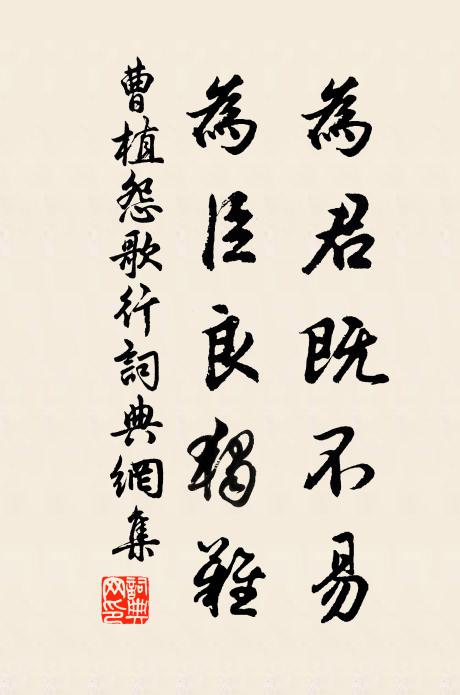 為君既不易
為臣良獨難
曹植怨歌行詞典網集
詞典
网印